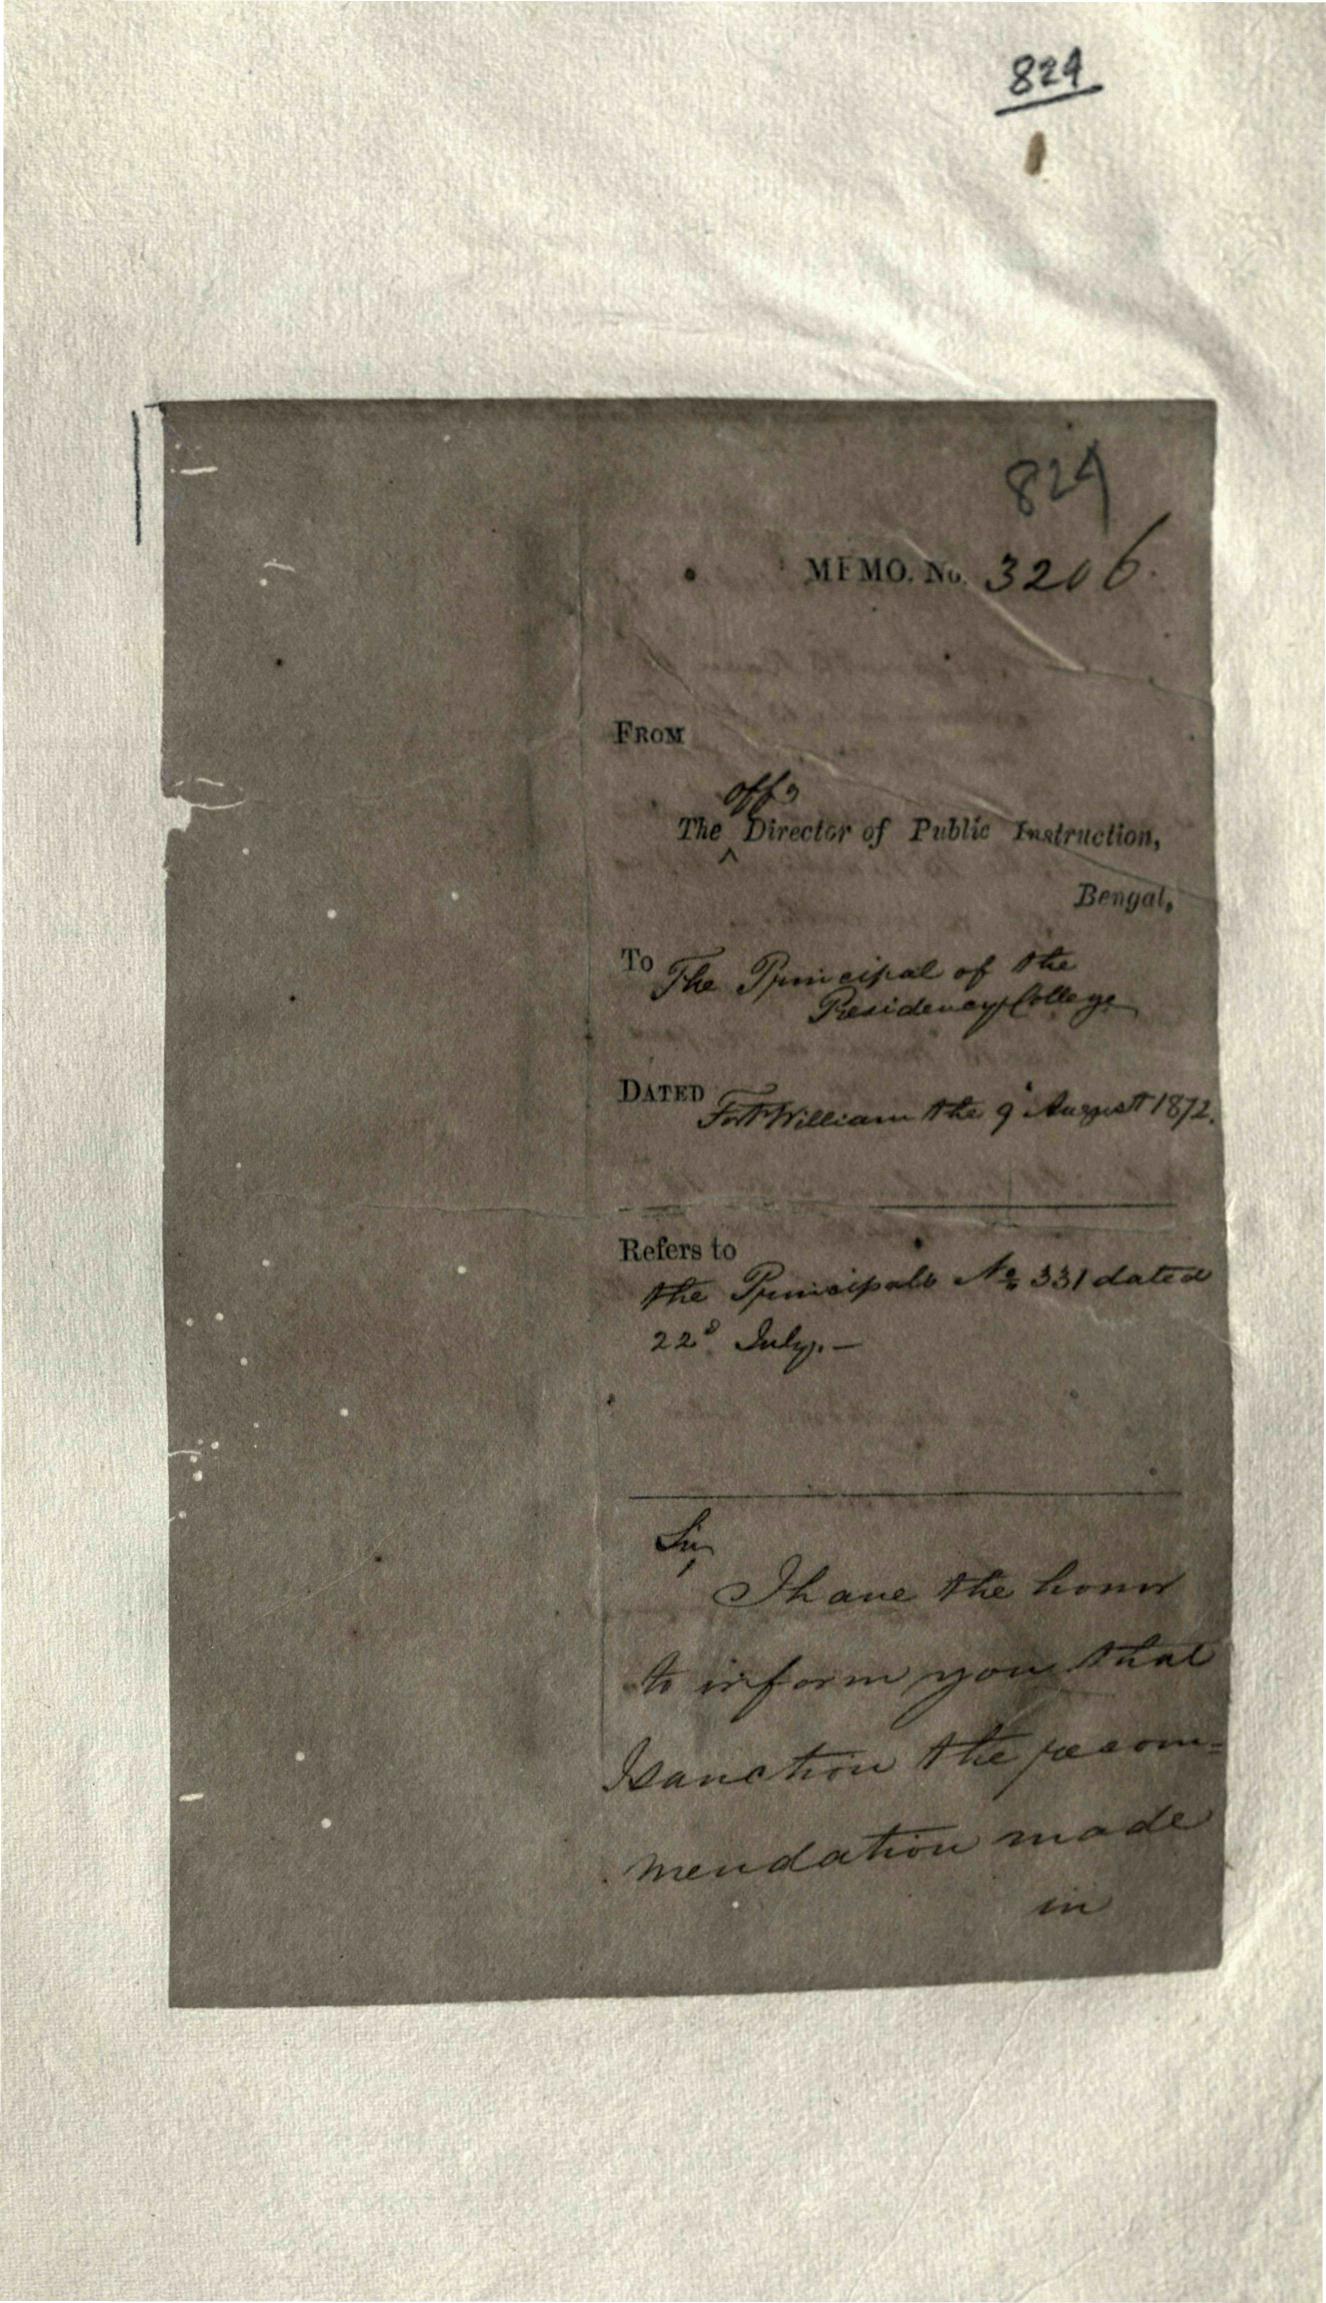 824
824
MEMO. No. 3206.
FROM
offg
The Director of Public Instruction,
Bengal,
To The Principal of the
Presidency College
DATED Fort William the 9 August 1872.
Refers to
the Principals No 331 dated
22d July. –
Sir,
I have the honor
to inform you that
I sanction the recom=
mendation made
in